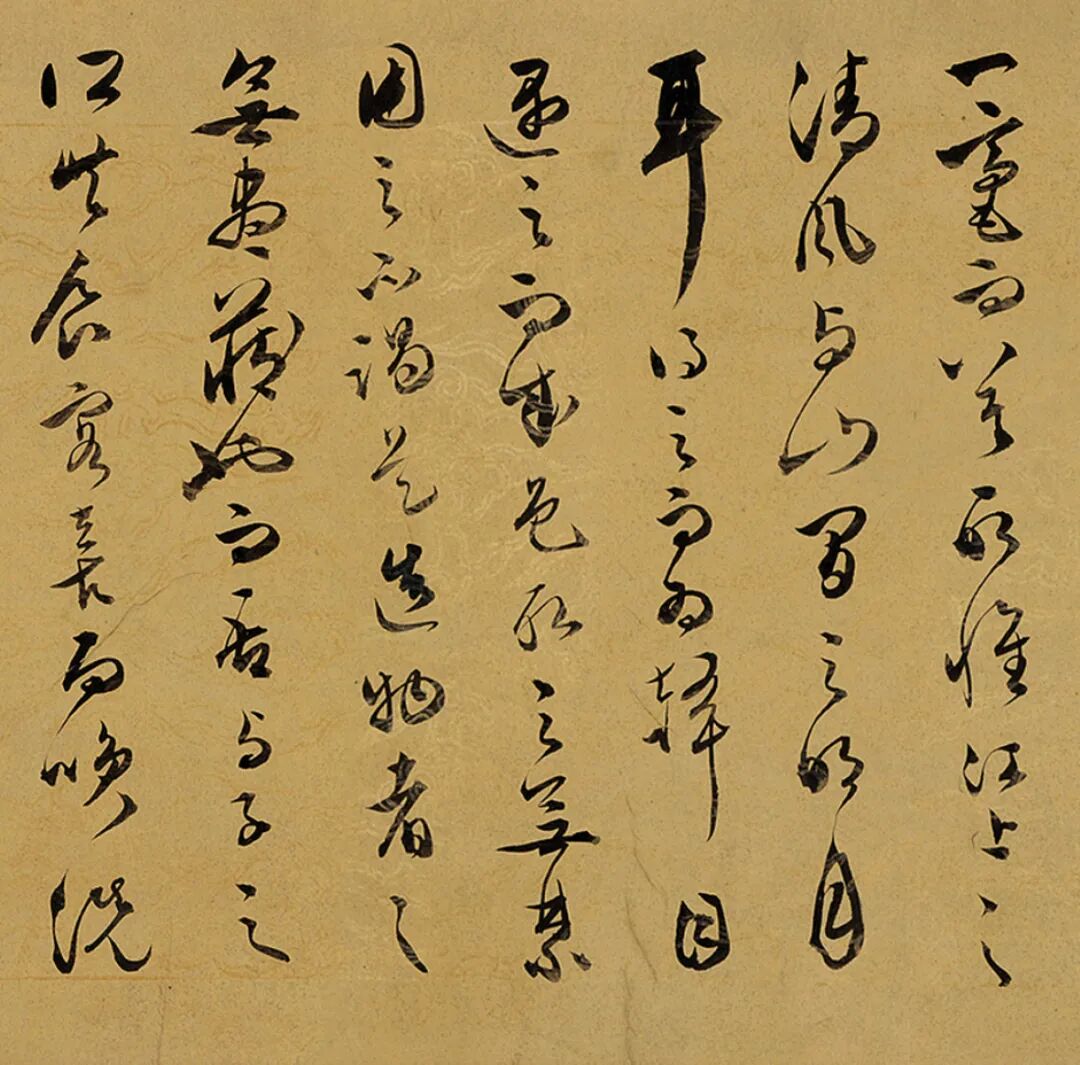 一毫而莫取惟江上之
清風與山間之明月
耳得之而為聲目
遇之而成色取之無禁
用之不竭是造物者之
無盡藏也而吾與子之
所共食客喜而咲洗